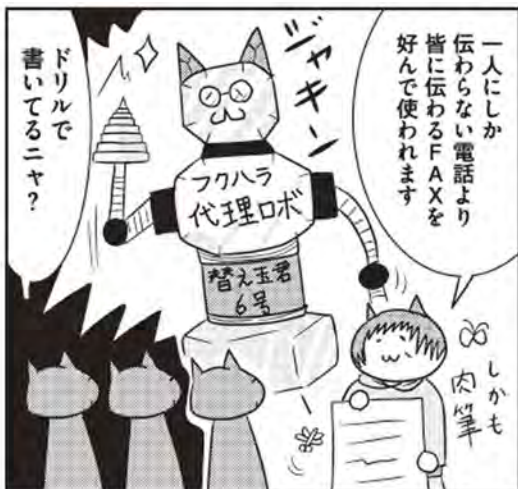 一人にしか
伝わらない電話より
皆に伝わるFAXを
好んで使われます
ジャキーン
フクハラ
代理ロボ
替え玉君
6号
しかも
肉筆
ドリルで
書いてるニャ?